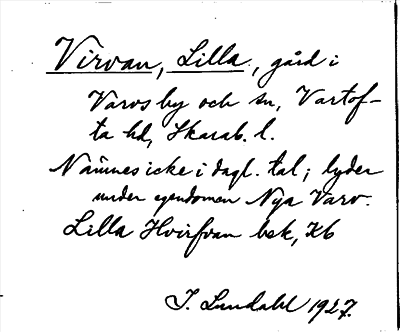 Virvan, Lilla, gård i
Varvs by och sn, Vartof-
ta hd, Skarab. l.
Nämnes icke i dagl. tal; lyder
under egendomen Nya Varv.
Lilla Hvirfvan bek, Kb
I. Lundahl 1927.